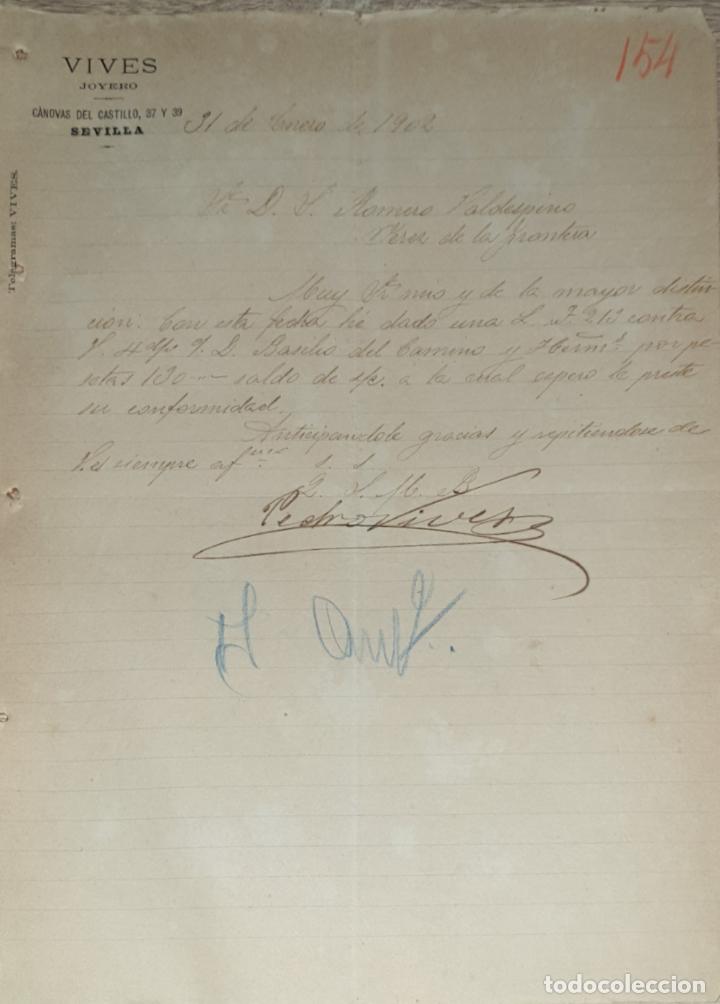 VIVES
JOYERO
CÁNOVAS DEL CASTILLO, 37 Y 39
SEVILLA
Telegramas: VIVES.
154
31 de Enero de 1902
Sr. D. S. Romero Valdespino
Xerez de la frontera
Muy Sr mio y de la mayor distin
cion: Con esta fecha hé dado una L. F. 213 contra
V. D. Basilio del Camino y Herm. por pe
setas 130 saldo de s/c. a la cual espero le preste
su conformidad.
Anticipandole gracias y repitiendose de
V. es siempre af. s. s.
Q. S. M. B
Pedro Vives
todocoleccion